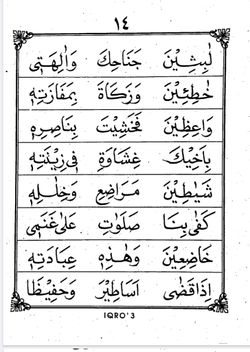 ١٤
لٰبِثِيْنَ جَنَاحِكَ وَاٰلِهَتِىْ
خٰطِـِٔيْنَ وَزَكَاةً بِمَفَازَتِهٖ
وَاعِظِيْنَ فَخَشِيْتَ بِنَاصِرِهٖ
بِاَخِيْكَ غِشَاوَةً فِىْ زِيْنَتِهٖ
شَيٰطِيْنَ مَرَاضِعَ وَخِلٰلِهٖ
كَفٰى بِنَا صَلَوٰتٍ عَلٰى غَنَمِىْ
خَاضِعِيْنَ وَهٰذِهٖ عِبَادَتِهٖ
اِذَا قَضٰى اَسَاطِيْرَ وَحَفِيْظًا
IQRO' 3